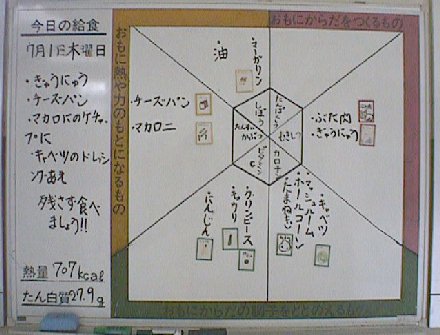 今日の給食
7月1日木曜日
・ぎゅうにゅう
・チーズパン
・マカロニのケチャ
ップに
・キャベツのドレッシ
ングあえ
残さず食べ
ましょう!!
熱量 707kcal
たん白質27.9g
おもに熱や力のもとになるもの
おもにからだをつくるもの
おもにからだの調子をととのえるもの
油
マーガリン
・チーズパン
・マカロニ
・ぶた肉
・ぎゅうにゅう
たんぱくしつ
しぼう
むきしつ
カロチン
ビタミン
・にんじん
・きゅうり
・グリンピース
・たまねぎ
・ホールコーン
・マッシュルーム
・キャベツ